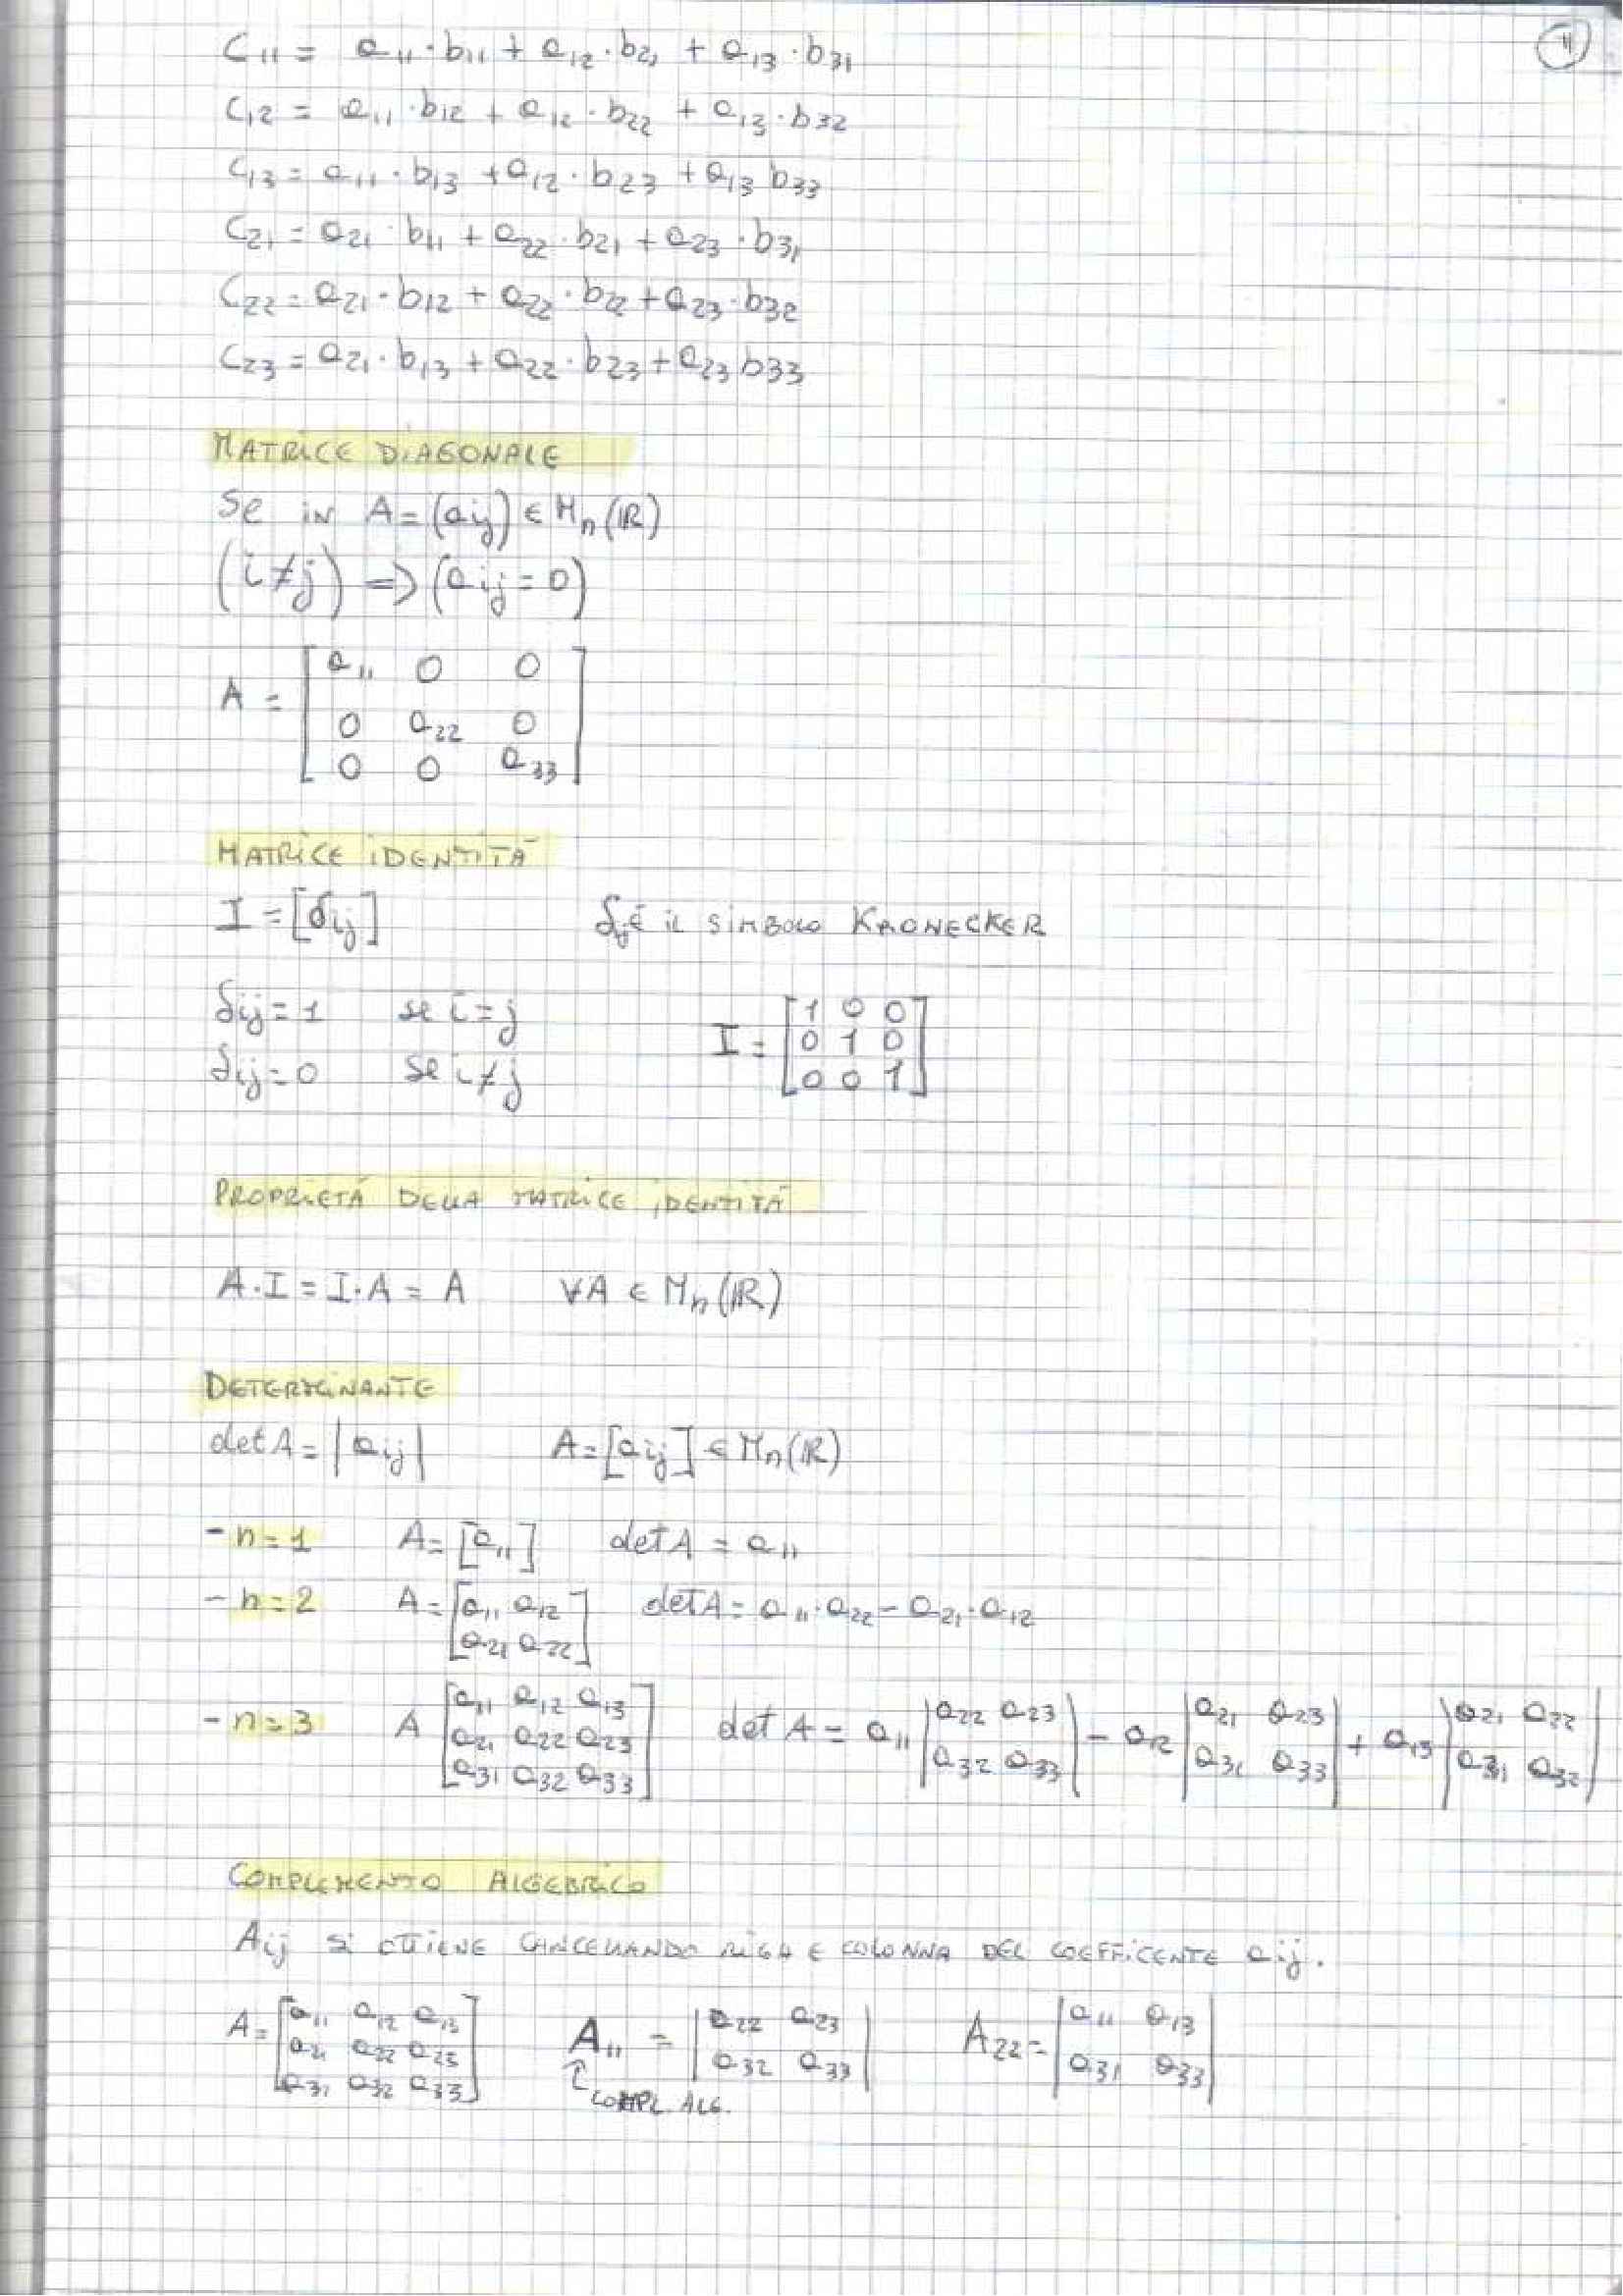 11
C₁₁ = a₁₁·b₁₁ + a₁₂·b₂₁ + a₁₃·b₃₁
C₁₂ = a₁₁·b₁₂ + a₁₂·b₂₂ + a₁₃·b₃₂
C₁₃ = a₁₁·b₁₃ + a₁₂·b₂₃ + a₁₃ b₃₃
C₂₁ = a₂₁·b₁₁ + a₂₂·b₂₁ + a₂₃·b₃₁
C₂₂ = a₂₁·b₁₂ + a₂₂·b₂₂ + a₂₃·b₃₂
C₂₃ = a₂₁·b₁₃ + a₂₂·b₂₃ + a₂₃ b₃₃
MATRICE DIAGONALE
Se IN A = (aij) ∈ Mn(ℝ)
(i≠j) => (aij = 0)
A = [a₁₁ 0 0
0 a₂₂ 0
0 0 a₃₃]
MATRICE IDENTITÀ
I = [δij] δij è IL SIMBOLO KRONECKER
δij = 1 se i = j
δij = 0 se i≠j
I = [1 0 0
0 1 0
0 0 1]
PROPRIETÀ DELLA MATRICE IDENTITÀ
A·I = I·A = A ∀A ∈ Mn(ℝ)
DETERMINANTE
detA = |aij| A = [aij] ∈ Mn(ℝ)
- n = 1 A = [a₁₁] detA = a₁₁
- n = 2 A = [a₁₁ a₁₂ detA = a₁₁·a₂₂ - a₂₁·a₁₂
a₂₁ a₂₂]
- n = 3 A [a₁₁ a₁₂ a₁₃
a₂₁ a₂₂ a₂₃
a₃₁ a₃₂ a₃₃]
det A = a₁₁ |a₂₂ a₂₃ - a₁₂ |a₂₁ a₂₃ + a₁₃ |a₂₁ a₂₂
a₃₂ a₃₃| a₃₁ a₃₃| a₃₁ a₃₂|
COMPLEMENTO ALGEBRICO
Aij SI OTTIENE CANCELLANDO RIGA E COLONNA DEL COEFFICENTE aij.
A = [a₁₁ a₁₂ a₁₃
a₂₁ a₂₂ a₂₃
a₃₁ a₃₂ a₃₃]
A₁₁ = |a₂₂ a₂₃
a₃₂ a₃₃|
↑ COMPL. ALG.
A₂₂ = |a₁₁ a₁₃
a₃₁ a₃₃|